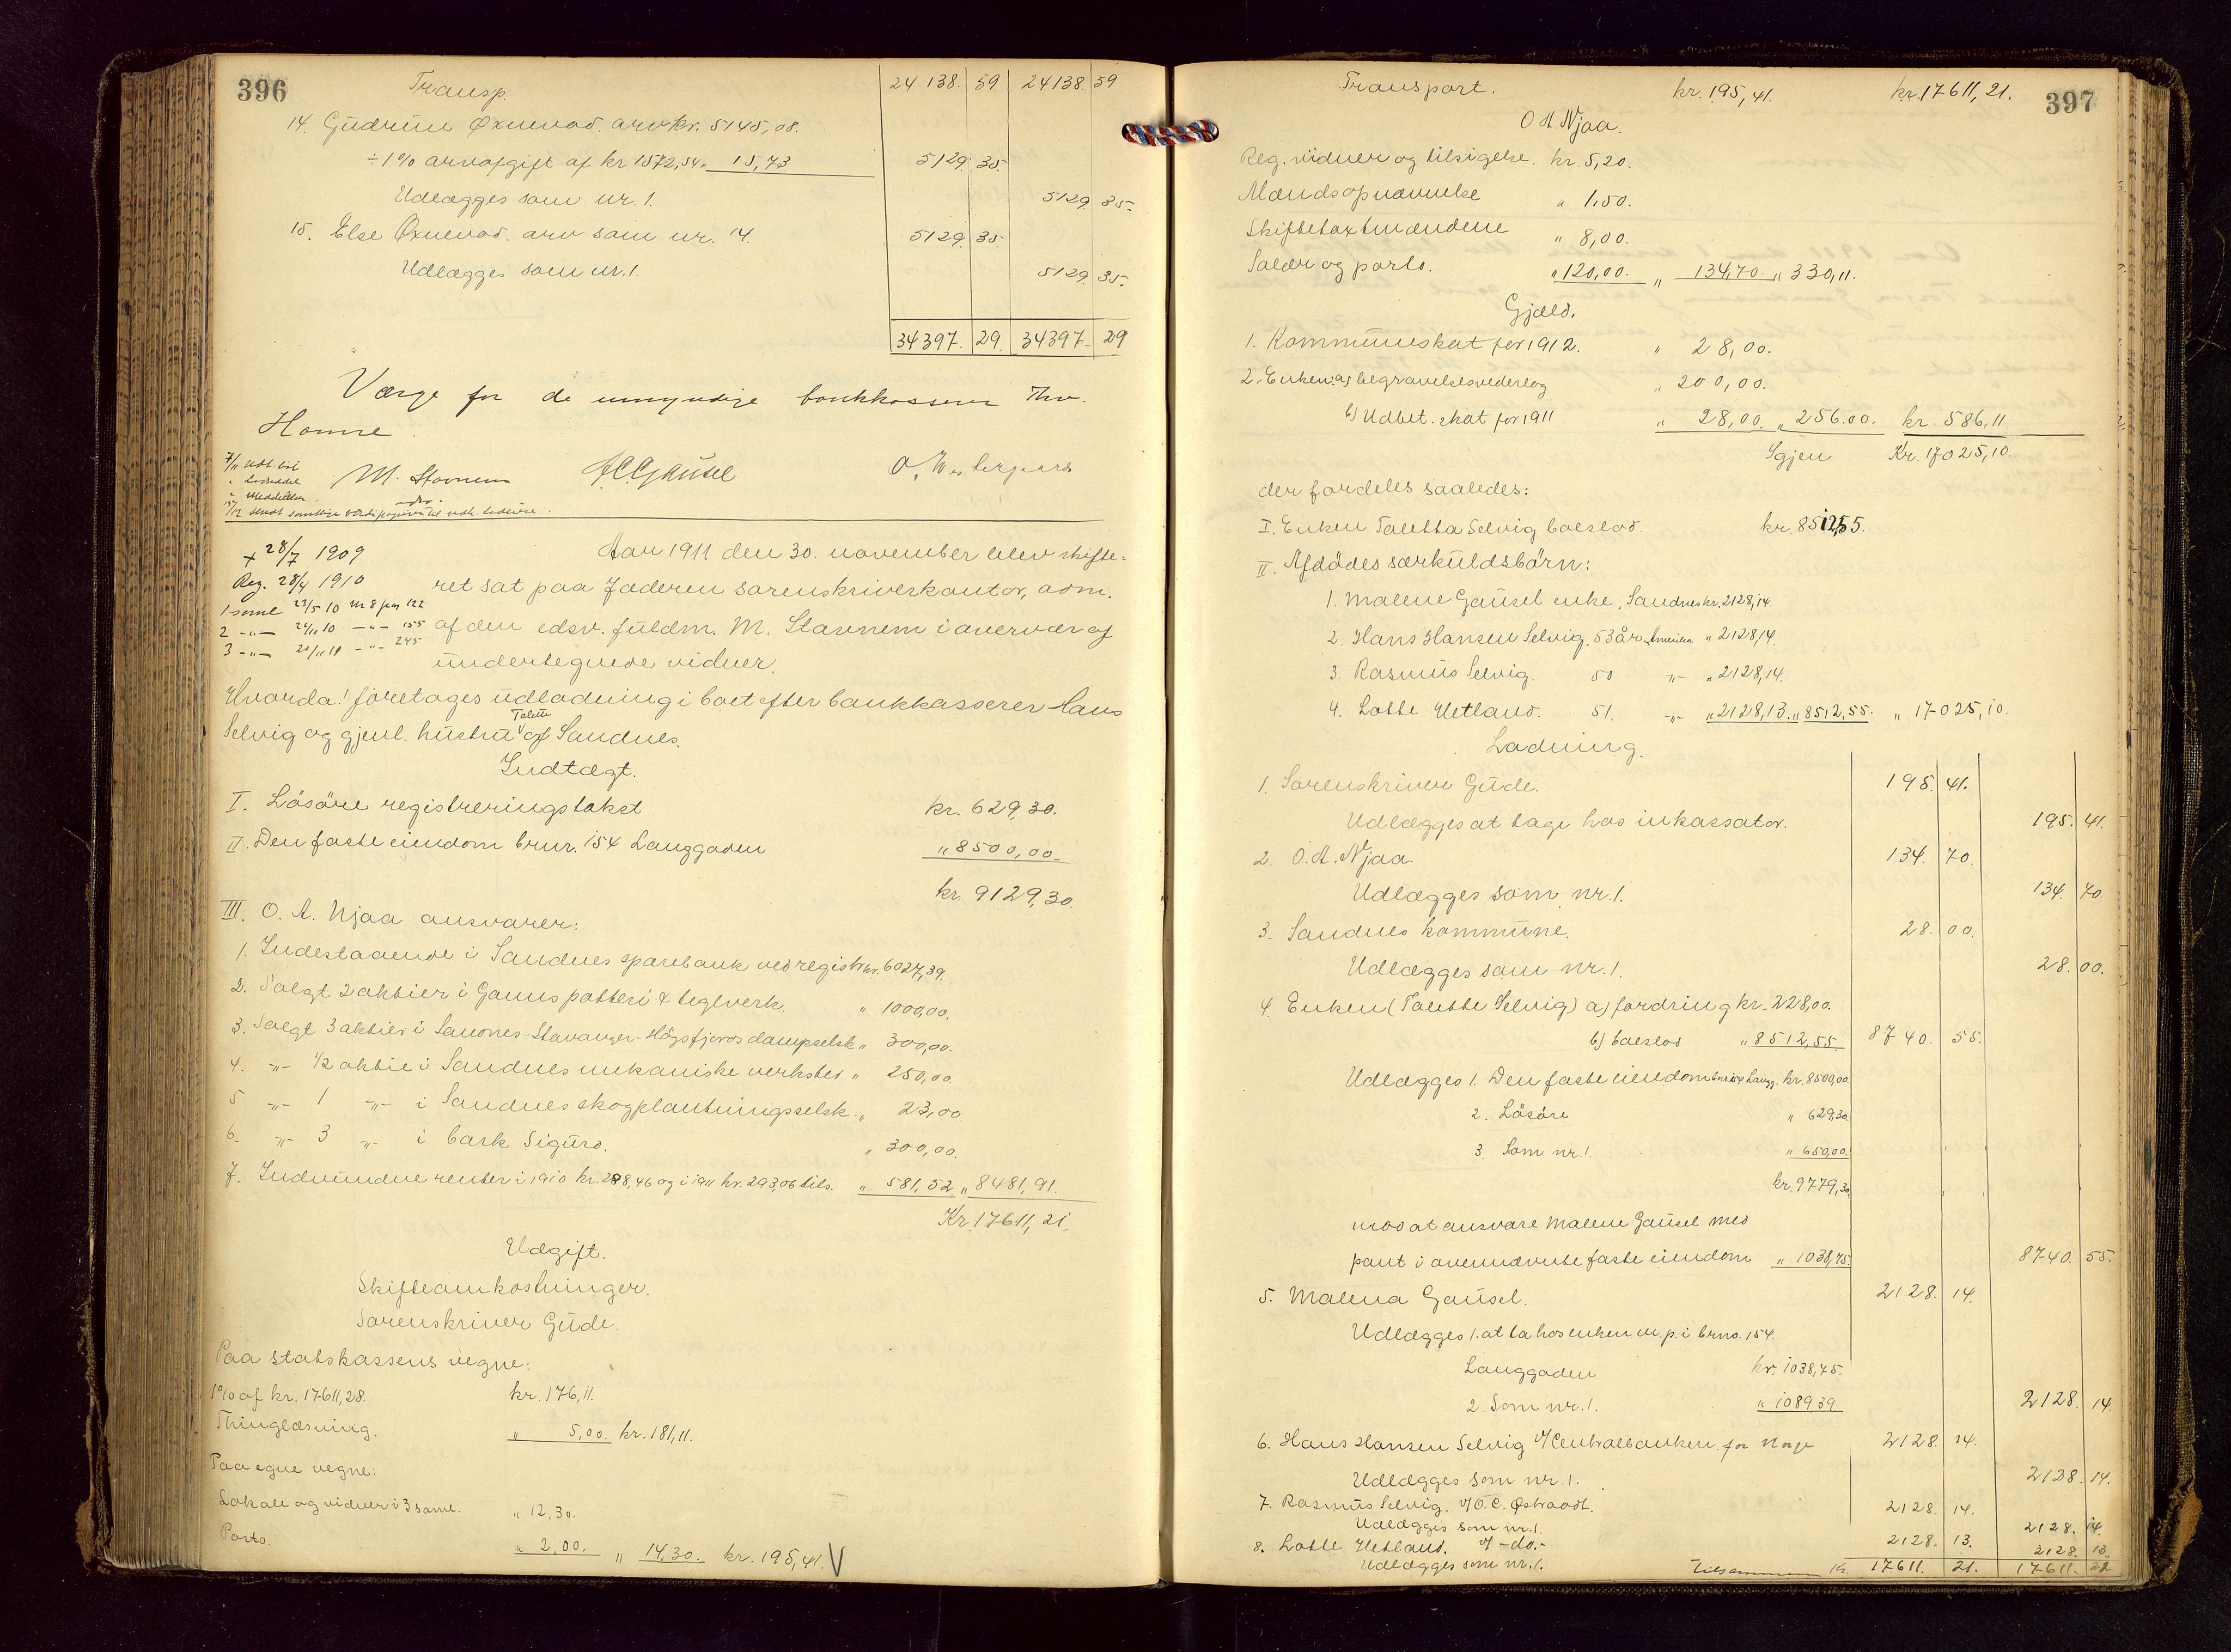 396
Transp. 24138. 59 24138. 59
14. Gudrun Øxnevad. arv kr. 5145,08.
÷ 1% arvafgift af kr 1572,54. 15,73 5129. 35.
Udlægges som nr. 1. 5129. 35.
15. Else Øxnevad. arv som nr. 14. 5129. 35
Udlægges som nr. 1. 5129. 35.
34397. 29. 34397. 29
Værge for de umyndige bankkasserer Thv.
Homse.
M. Stavnem A.C. Gausel O. Westergaard
+ 28/7 1909 Aar 1911 den 30. november blev skifte-
Reg. 28/4 1910 ret sat paa Jæderen sorenskriverkontor, adm.
1 saml 23/5 10 nr 8 pag 122
2 -"- 24/11 10 -"- 155 af den edsv. fuldm. M. Stavnem i overvær af
3 -"- 20/11 11 -"- 245
undertegnede vidner.
Hvorda! foretages udlodning i boet efter bankkasserer Hans
Selvig og gjenl. hustru Talette af Sandnes.
Indtægt.
I. Lösöre registreringstakst kr. 629,30.
II. Den faste eiendom brnr. 154 Langgaden " 8500,00.
kr. 9129,30.
III. O. A. Njaa ansvarer:
1. Indestaaende i Sandnes sparebank ved registr. kr. 6027,39.
2. Solgt 2 aktier i Ganns potteri & teglverk. " 1000,00.
3. Solgt 3 aktier i Sandnes-Stavanger-Högsfjords dampselsk " 300,00.
4. -"- 1/2 aktie i Sandnes mekaniske verksted " 250,00.
5 -"- 1 -"- i Sandnes skogplantningsselsk. " 23,00
6. -"- 3 -"- i bark Sigurd. " 300,00.
7. Indvundne renter i 1910 kr. 288,46 og i 1911 kr. 293,06 tils. " 581,52 " 8481,91.
Kr. 17611,21.
Udgift.
Skifteomkostninger.
Sorenskriver Gude.
Paa statskassens vegne:
1% af kr. 17611,28. kr. 176,11.
Thinglæsning. " 5,00. kr. 181,11.
Paa egne vegne:
Lokale og vidner i 3 saml. " 12,30.
Porto. " 2,00. " 14,30. kr. 195,41. V
397
Transport. kr. 195,41. kr. 17611,21.
O A Njaa.
Reg. vidner og tilsigelse. kr. 5,20.
Mændsopnævnelse " 1,50.
Skiftetaxtmændene " 8,00.
Salær og porto. " 120,00. " 134,70. " 330,11.
Gjæld.
1. Kommuneskat for 1912. " 28,00.
2. Enken: a) begravelsesvederlag " 200,00.
b) Udbet. skat for 1911 " 28,00. " 256.00. kr. 586,11
Igjen Kr. 17025,10.
der fordeles saaledes:
I. Enken Taletta Selvig boeslod. kr. 8512,55.
II. Afdödes særkuldsbörn:
1. Malene Gausel enke, Sandnes kr. 2128,14.
2. Hans Hansen Selvig. 53 år, Amerika " 2128,14.
3. Rasmus Selvig. 50 -"- " 2128,14.
4. Lotte Hetland. 51. -"- " 2128,13. " 8512,55. " 17025,10.
Lodning.
1. Sorenskriver Gude. 195. 41.
Udlægges at tage hos inkassator. 195. 41.
2. O. A. Njaa. 134. 70.
Udlægges som nr. 1. 134. 70
3. Sandnes kommune. 28. 00.
Udlægges som nr. 1. 28. 00.
4. Enken (Talette Selvig) a) fordring kr. 228,00.
b) boeslod " 8512,55. 8740. 55.
Udlægges 1. Den faste eiendom brnr 154 Langg. kr. 8500,00.
2. Lösöre " 629,30
3. Som nr. 1. " 650,00.
kr. 9779,30
mod at ansvare Malene Gausel med
pant i ovennævnte faste eiendom " 1038,75. 8740. 55.
5. Malena Gausel. 2128. 14.
Udlægges 1. at ta hos enken m. p. i brno. 154.
Langgaden kr. 1038,75.
2. Som nr. 1. " 1089 39 2128. 14.
6. Hans Hansen Selvig v/ Centralbanken for Norge 2128. 14.
Udlægges som nr. 1. 2128. 14.
7. Rasmus Selvig. v/ O. C. Östraadt. 2128. 14.
Udlægges som nr. 1. 2128. 14.
8. Lotte Hetland. v/ -do.- 2128. 13.
Udlægges som nr. 1. 2128. 13.
tilsammen kr. 17611. 21. 17611. 21